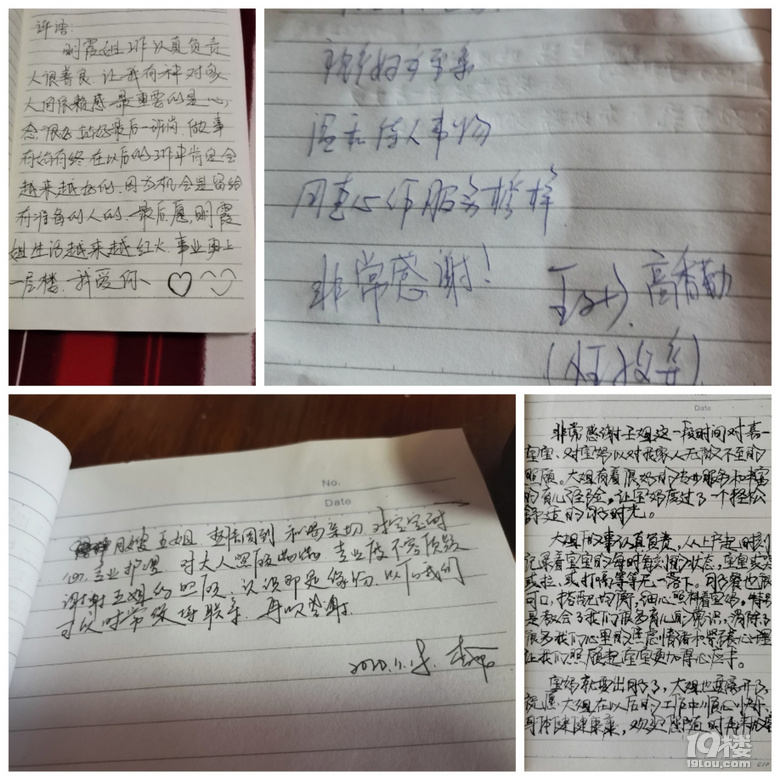 评语:
明霞姐工作认真负责
人很善良，让我有种对家
人间很赖感 最重要的是心
态很好 站好最后一班岗 做事
有始有终 在以后的工作中肯定会
越来越好的，因为机会是留给
有准备的人的，最后愿，明霞
姐生活越来越红火，事业更上
一层楼，我爱你、
温和 待人事物
用真心作服务榜样
非常感谢！
高香勤
No.
Date
月嫂王姐 和蔼亲切 对宝宝耐
心 专业护理 对大人照顾 专业度不容质疑
谢谢王姐的照顾 认识即是缘份 以后我们
可以时常 联系 再次感谢
2020.11.15
Date
非常感谢王姐这一段时间对喜
宝宝、对宝妈以及对我家人无微不至的
照顾。大姐有着很好的专业服务和丰富
的育儿经验，让宝妈度过了一个轻松
舒适的月子时光。
大姐做事认真负责，从上户起时刻
记录着宝宝的每时每刻的状态，宝宝或
或拉、或打嗝等等无一落下。月子餐也很
可口，搭配均衡，细心照料着宝妈，特别
是教会了我们很多育儿的常识，消除了
很多我们心里的焦虑情绪和紧张心理
让我们照顾起宝宝更加得心应手。
宝妈就要出月子了，大姐也要离开了
祝愿大姐在以后的工作中顺心顺利、
身体健健康康，欢迎 随时再来
19楼
19lou.com